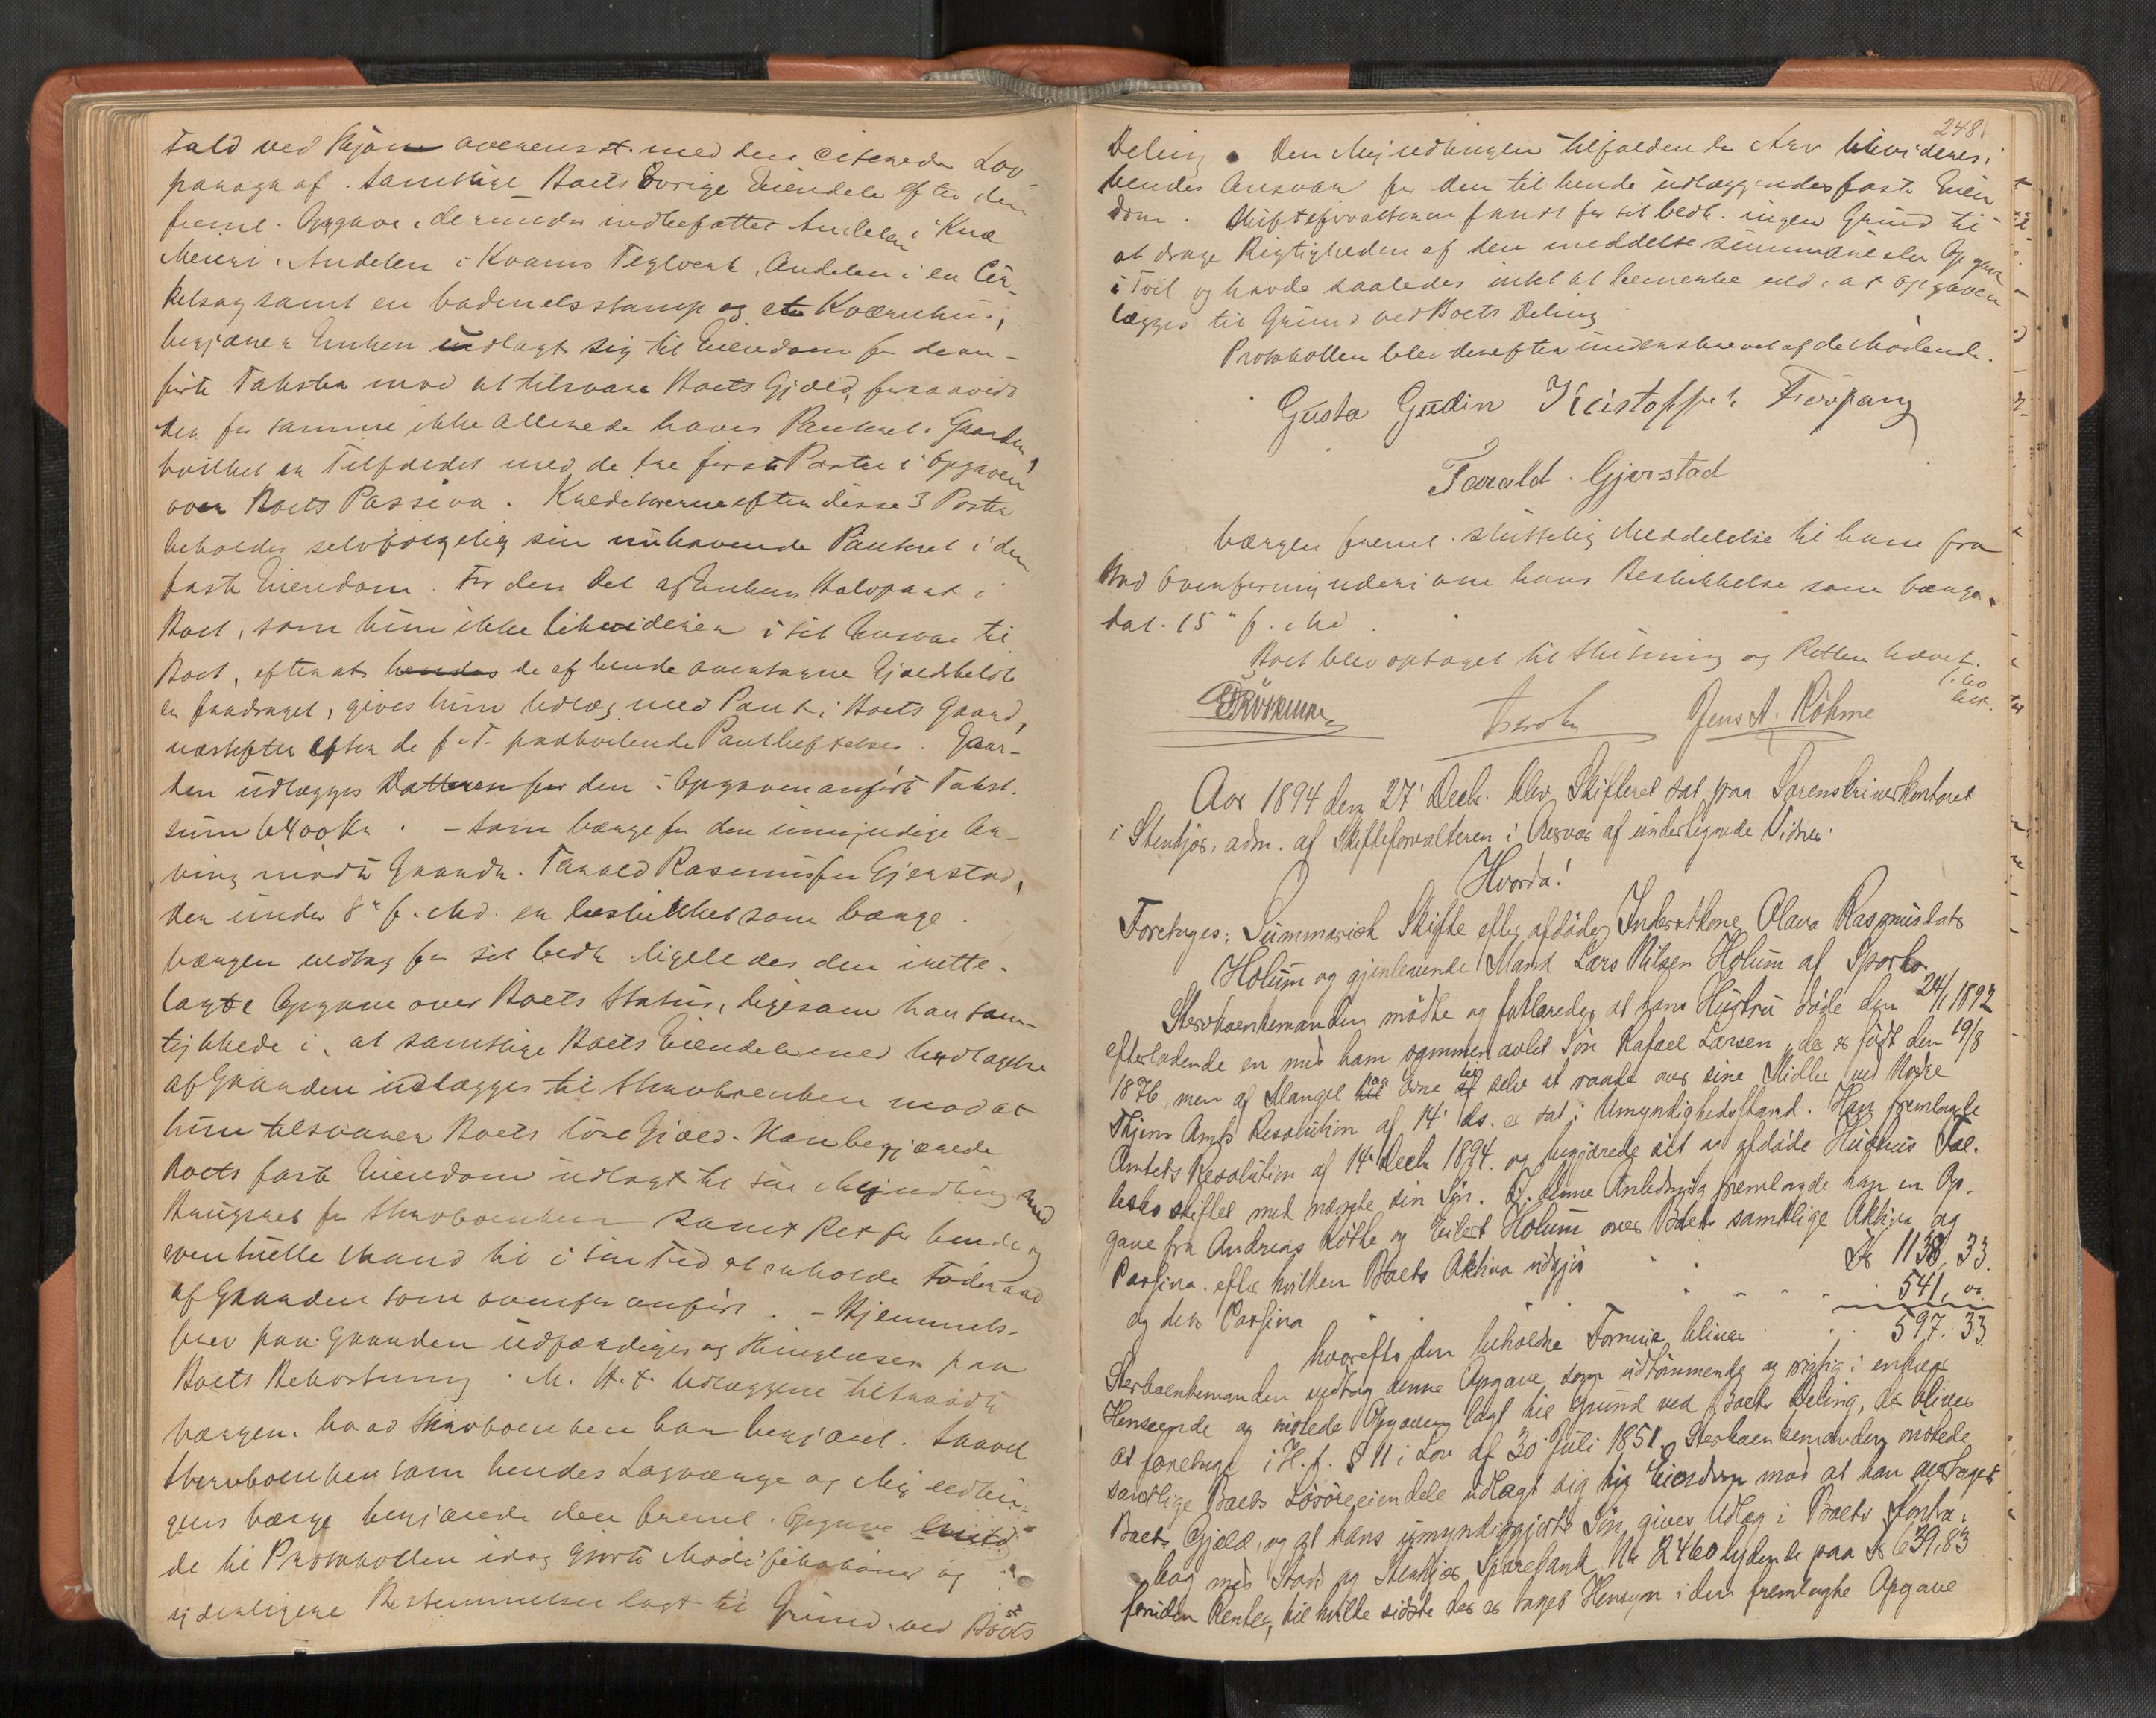 tald ved Skjøn overensst. med den citerede Lov-
paragraf. Samtlige Boets Øvrige Eiendele efter den
freml. Opgave, derunder indbefattet Andelen i
Meieri, Andelen i Kvams Teglverk, Andelen i en Cir-
kelsag samt en vadmelsstamp og et Kværnhus,
begjærer Enken udlagt sig til Eiendom for de an-
førte Takster mod at tilsvare Boets Gjæld, forsaavidt
der for samme ikke allerede haves Panteret i Gaarden,
hvilket er Tilfældet med de tre første Poster i Opgaven
over Boets Passiva. Kreditorerne efter disse 3 Poster
beholder selvfølgelig sin nuhavende Panteret i den
faste Eiendom. For den Del af Enkens Halvpart i
Boet, som hun ikke likviderer i sit Ansvar til
Boet, efterat hendes de af hende overtagne Gjældsbeløb
er fradraget, gives hun Udlæg med Pant i Boets Gaard,
næstefter efter de f. T. paahvilende Panteheftelser. Gaar-
den udlægges Datteren for den i Opgaven anførte Takst-
sum 6400 Kr. - Som Værge for den umyndige Ar-
ving mødte Gaardr. Tarald Rasmussen Gjerstad,
der under 8de f. Md. er beskikket som Værge.
Værgen vedtog for sit Vedk. ligeledes den irette-
lagte Opgave over Boets Status, ligesom han sam-
tykkede i, at samtlige Boets Eiendele med Undtagelse
af Gaarden udlægges til Stervboenken mod at
hun tilsvarer Boets løse Gjæld. Han begjærede
Boets faste Eiendom udlagt til sin Myndling med
Brugsret for Stervboenken samt Ret for hende og
eventuelle Mand til i sin Tid at erholde Føderaad
af Gaarden som ovenfor anført. - Hjemmels-
brev paa Gaarden udfærdiges og thinglæses paa
Boets Bekostning. M. H. t. Udlæggene tiltraadte
Værgen, hvad Stervboenken har begjæret. Saavel
Stervboenken som hendes Lagværge og Myndlin-
gens Værge begjærede den freml. Opgave
de til Protokollen idag gjorte Modifikationer og
ydenligere Bestemmelser lagt til Grund ved Boets
248
Deling. Den Myndlingen tilfaldende Arv likvideres i
hendes Ansvar for den til hende udlæggendes faste Eien
dom. Skifteforvalteren fandt for sit Vedk. ingen Grund til
at drage Rigtigheden af den meddelte summariske Opgave
i Tvil og havde saaledes intet at bemerke ved, at Opgaven
lægges til Grund ved Boets Deling
Protokollen blev derefter underskrevet af de Mødende.
Gusta Gudin Kristoffer
Tarald Gjerstad
Værgen freml. skriftlig Meddelelse til ham fra
Overformynderi om hans Beskikkelse som Værge,
dat. 15de f. Md.
Boet blev optaget til Slutning og Retten hævet.
Jens A. Röhme
Aar 1894 den 27' Decbr. blev Skifteret sat paa Sorenskriverkontoret
i Stenkjær, adm. af Skifteforvalteren i Overvær af undertegnede Vidner.
Hvorda!
Foretages: Summarisk Skifte efter afdøde Inderstkone Olava Rasmusdatr
Holum og gjenlevende Mand Lars Nilsen Holum af Sparbo.
Stervboenkemanden mødte og forklarede, at hans Hustru døde den 24/1 1892
efterladende en med ham sammenavlet Søn Rafael Larsen, der er født den 19/8
1876, men af Mangel paa Evne til selv at raade over sine Midler ved Nordre
Thjems Amts Resolution af 14' ds. er sat i Umyndighedsstand. Han fremlagde
Amtets Resolution af 14' Decbr 1894. og begjærede sit og afdøde Hustrus Fæl-
lesbo skiftet med nævnte sin Søn. I denne Anledning fremlagde han en Op-
gave fra Andreas Röthe og Eilert Holum over Boets samtlige Aktiva og
Passiva, efter hvilken Boets Aktiva udgjør Kr 1138,33.
og dets Passiva 541, oo.
hvorefter den beholdne Formue bliver 597.33
Sterboenkemanden vedtog denne Opgave som udtømmende og rigtig i enhver
Henseende og ønskede Opgaven lagt til Grund ved Boets Deling, der bliver
at foretage i H. t. § 11 i Lov af 30 Juli 1851. Sterboenkemanden ønskede
samtlige Boets Løsøreeiendele udlagt sig til Eiendom mod at han overtager
Boets Gjæld, og at hans umyndiggjorte Søn gives Udlæg i Boets Kontra-
bog med Stod og Stenkjær Sparebank Nr 2460 lydende paa Kr 639,83
foruden Renter, til hvilke sidste der er taget Hensyn i den fremlagte Opgave